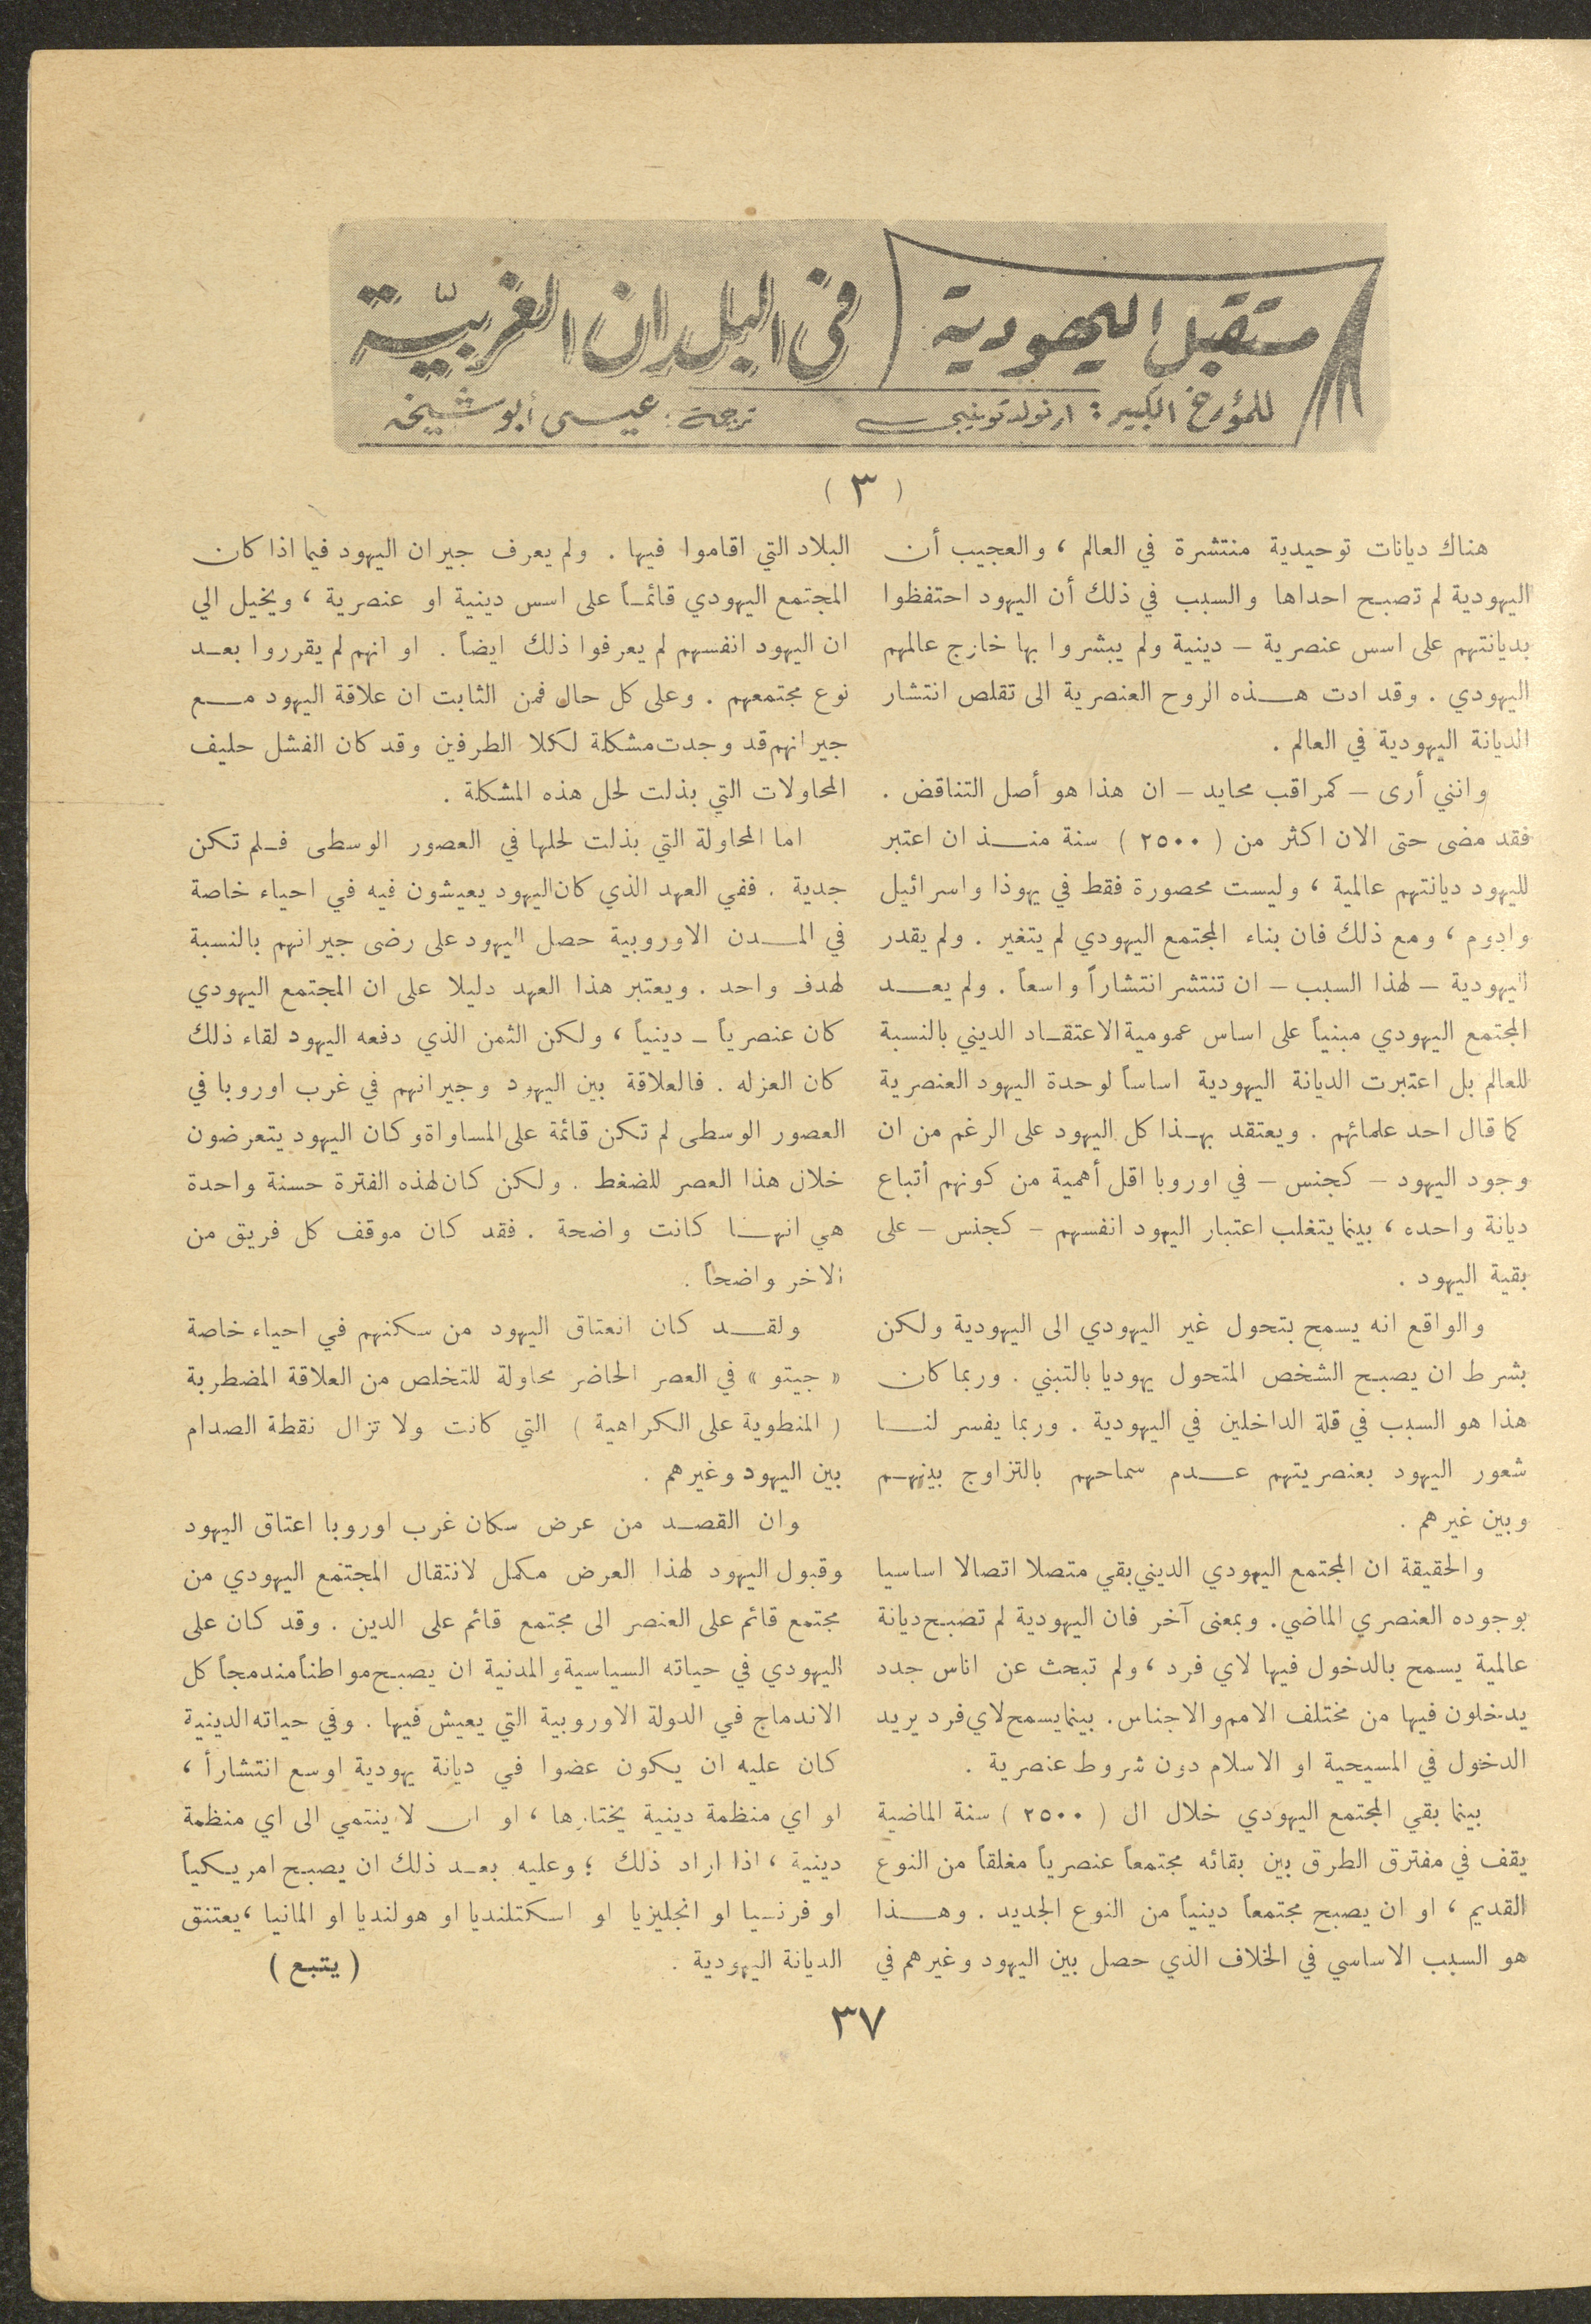 مستقبل اليهودية في البلدان الغربيّة
للمؤرخ الكبير : ارنولد توينبي ترجمة : عيسى أبو شيخه
( ٣ )
هناك ديانات توحيدية منتشرة في العالم ، والعجيب أن
اليهودية لم تصبح احداها والسبب في ذلك أن اليهود احتفظوا
بديانتهم على اسس عنصرية – دينية ولم يبشروا بها خارج عالمهم
اليهودي . وقد ادت هذه الروح العنصرية الى تقلص انتشار
الديانة اليهودية في العالم .
وانني أرى – كمراقب محايد – ان هذا هو أصل التناقض .
فقد مضى حتى الان اكثر من ( ٢٥٠٠ ) سنة منذ ان اعتبر
لليهود ديانتهم عالمية ، وليست محصورة فقط في يهوذا واسرائيل
وادوم ، ومع ذلك فان بناء المجتمع اليهودي لم يتغير . ولم يقدر
اليهودية – لهذا السبب – ان تنتشر انتشاراً واسعاً . ولم يعد
المجتمع اليهودي مبنياً على اساس عمومية الاعتقاد الديني بالنسبة
للعالم بل اعتبرت الديانة اليهودية اساساً لوحدة اليهود العنصرية
كما قال احد علمائهم . ويعتقد بهذا كل اليهود على الرغم من ان
وجود اليهود – كجنس – في اوروبا اقل أهمية من كونهم أتباع
ديانة واحده ، بينما يتغلب اعتبار اليهود انفسهم – كجنس – على
بقية اليهود .
والواقع انه يسمح بتحول غير اليهودي الى اليهودية ولكن
بشرط ان يصبح الشخص المتحول يهوديا بالتبني . وربما كان
هذا هو السبب في قلة الداخلين في اليهودية . وربما يفسر لنا
شعور اليهود بعنصريتهم عدم سماحهم بالتزاوج بينهم
وبين غيرهم .
والحقيقة ان المجتمع اليهودي الديني بقي متصلا اتصالا اساسيا
بوجوده العنصري الماضي . وبمعنى آخر فان اليهودية لم تصبح ديانة
عالمية يسمح بالدخول فيها لاي فرد ، ولم تبحث عن اناس جدد
يدخلون فيها من مختلف الامم والاجناس . بينما يسمح لاي فرد يريد
الدخول في المسيحية او الاسلام دون شروط عنصرية .
بينما بقي المجتمع اليهودي خلال ال ( ٢٥٠٠ ) سنة الماضية
يقف في مفترق الطرق بين بقائه مجتمعاً عنصرياً مغلقاً من النوع
القديم ، او ان يصبح مجتمعاً دينياً من النوع الجديد . وهذا
هو السبب الاساسي في الخلاف الذي حصل بين اليهود وغيرهم في
البلاد التي اقاموا فيها . ولم يعرف جيران اليهود فيما اذا كان
المجتمع اليهودي قائماً على اسس دينية او عنصرية ، ويخيل الي
ان اليهود انفسهم لم يعرفوا ذلك ايضاً . او انهم لم يقرروا بعد
نوع مجتمعهم . وعلى كل حال فمن الثابت ان علاقة اليهود مع
جيرانهم قد وجدت مشكلة لكلا الطرفين وقد كان الفشل حليف
المحاولات التي بذلت لحل هذه المشكلة .
اما المحاولة التي بذلت لحلها في العصور الوسطى فلم تكن
جدية . ففي العهد الذي كان اليهود يعيشون فيه في احياء خاصة
في المدن الاوروبية حصل اليهود على رضى جيرانهم بالنسبة
لهدف واحد . ويعتبر هذا العهد دليلا على ان المجتمع اليهودي
كان عنصرياً – دينياً ، ولكن الثمن الذي دفعه اليهود لقاء ذلك
كان العزله . فالعلاقة بين اليهود وجيرانهم في غرب اوروبا في
العصور الوسطى لم تكن قائمة على المساواة وكان اليهود يتعرضون
خلال هذا العصر للضغط . ولكن كان لهذه الفترة حسنة واحدة
هي انها كانت واضحة . فقد كان موقف كل فريق من
الاخر واضحاً .
ولقد كان انعتاق اليهود من سكنهم في احياء خاصة
« جيتو » في العصر الحاضر محاولة للتخلص من العلاقة المضطربة
( المنطوية على الكراهية ) التي كانت ولا تزال نقطة الصدام
بين اليهود وغيرهم .
وان القصد من عرض سكان غرب اوروبا اعتاق اليهود
وقبول اليهود لهذا العرض مكمل لانتقال المجتمع اليهودي من
مجتمع قائم على العنصر الى مجتمع قائم على الدين . وقد كان على
اليهودي في حياته السياسية والمدنية ان يصبح مواطناً مندمجاً كل
الاندماج في الدولة الاوروبية التي يعيش فيها . وفي حياته الدينية
كان عليه ان يكون عضوا في ديانة يهودية اوسع انتشاراً ،
او اي منظمة دينية يختارها ، او ان لا ينتمي الى اي منظمة
دينية ، اذا اراد ذلك ؛ وعليه بعد ذلك ان يصبح امريكياً
او فرنسيا او انجليزيا او اسكتلنديا او هولنديا او المانيا ، يعتنق
الديانة اليهودية . ( يتبع )
٣٧